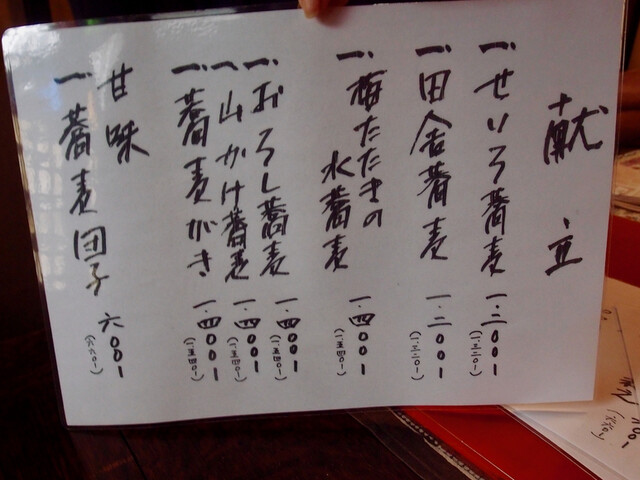 献立
一、せいろ蕎麦 一、二〇〇一
(一、三二〇一)
一、田舎蕎麦 一、二〇〇一
(一、三二〇一)
一、梅たたきの
水蕎麦 一、四〇〇一
(一、五四〇一)
一、おろし蕎麦 一、四〇〇一
(一、五四〇一)
一、山かけ蕎麦 一、四〇〇一
(一、五四〇一)
一、蕎麦がき 一、四〇〇一
(一、五四〇一)
甘味
一、蕎麦団子 六〇〇一
(六六〇一)